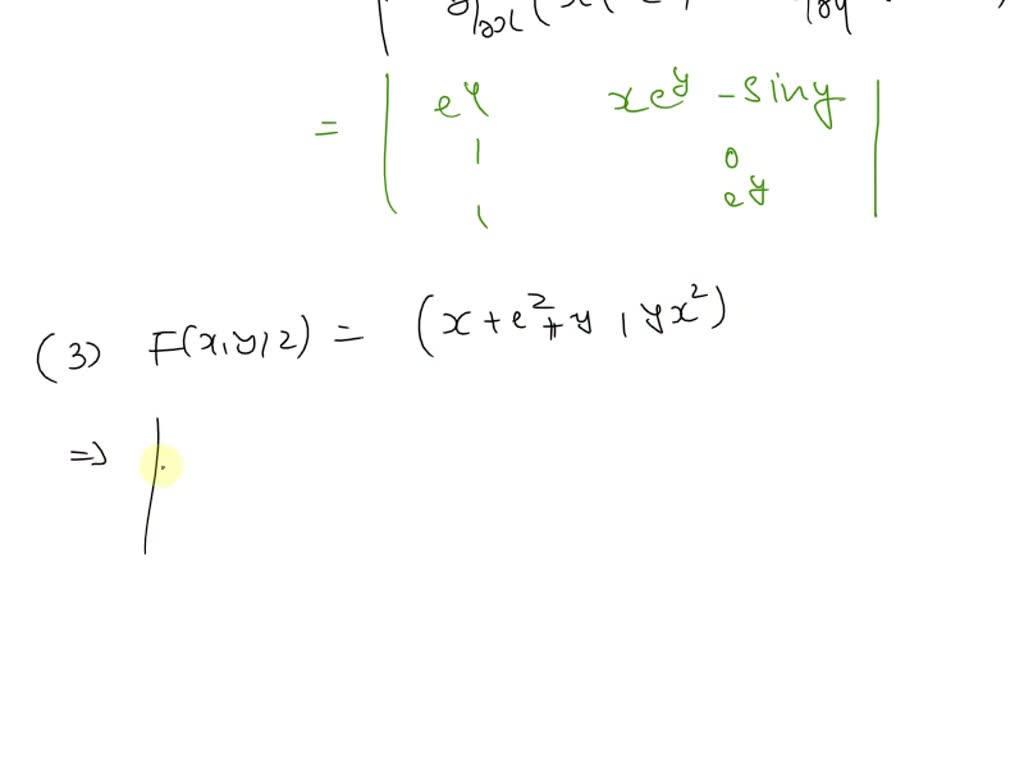 = | e^y xe^y - siny |
1 0
1 e^y
(3) F(x,y,z) = (x + e^z + y, yx^2)
=> |